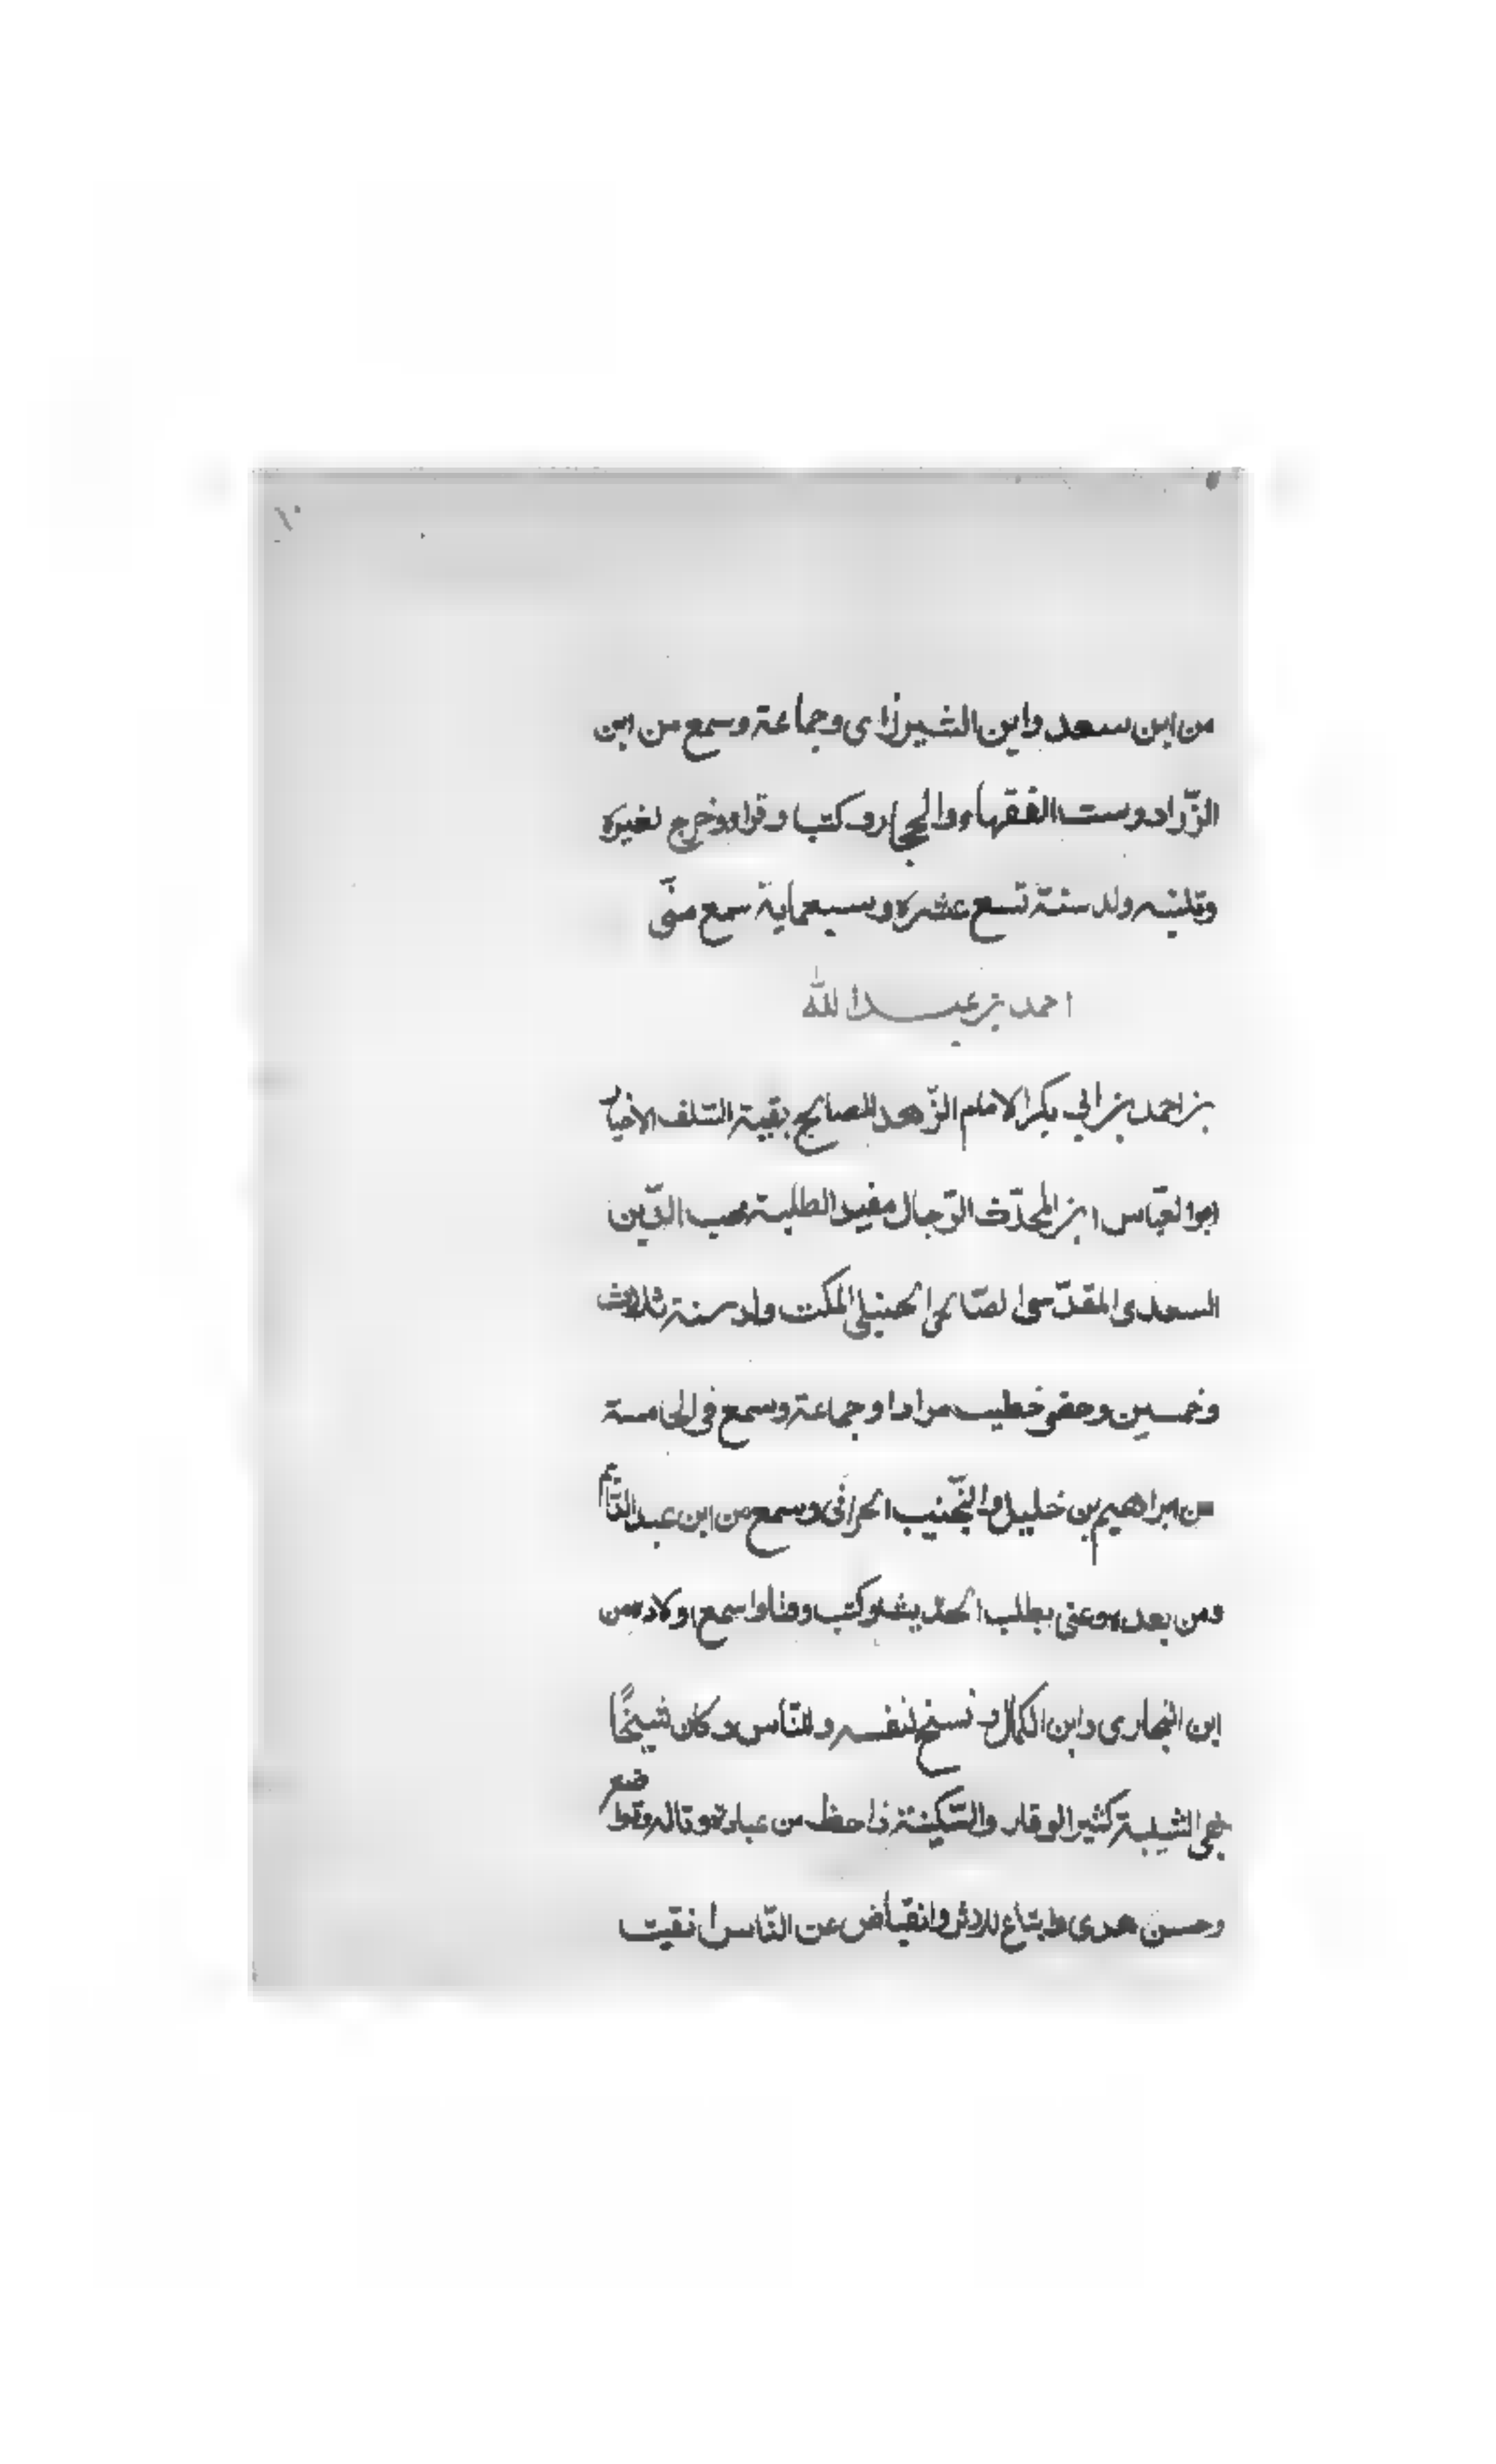 ١٠
من ابن سعد وابن الشيرازى وجماعة وسمع من ابن
الزّراد وست الفقهاء والحجار وكتب وقرا وخرج لغيره
ولد سنة تسع عشره وسبعماية سمع منّى
احمد بن عبد الله
بن احمد بن ابي بكر الامام الزّهد الصالح بقية السّلف الاخيار
ابو العبّاس ابن المحدّث الرّجال مفيد الطلبة محب الدّين
السعدى المقدّسى الصّالحى الحنبلى ولد سنة ثلاث
وخمسين وحضر خطيب مردا وجماعة وسمع فى الخامسة
من ابراهيم بن خليل والنّجيب الحرانى وسمع من ابن عبد الدّايم
ومن بعده وعنى بطلب الحديث وكتب وقرا واسمع اولاده من
ابن البخارى وابن الكمال ونسخ لنفسه وللنّاس وكان شيخًا
بهى الشيبة كثير الوقار والسّكينة ذا حظ من عبادة وتاله وتواضع
وحسن هدى واتباع للاثر وانقباض عن النّاس انقيت